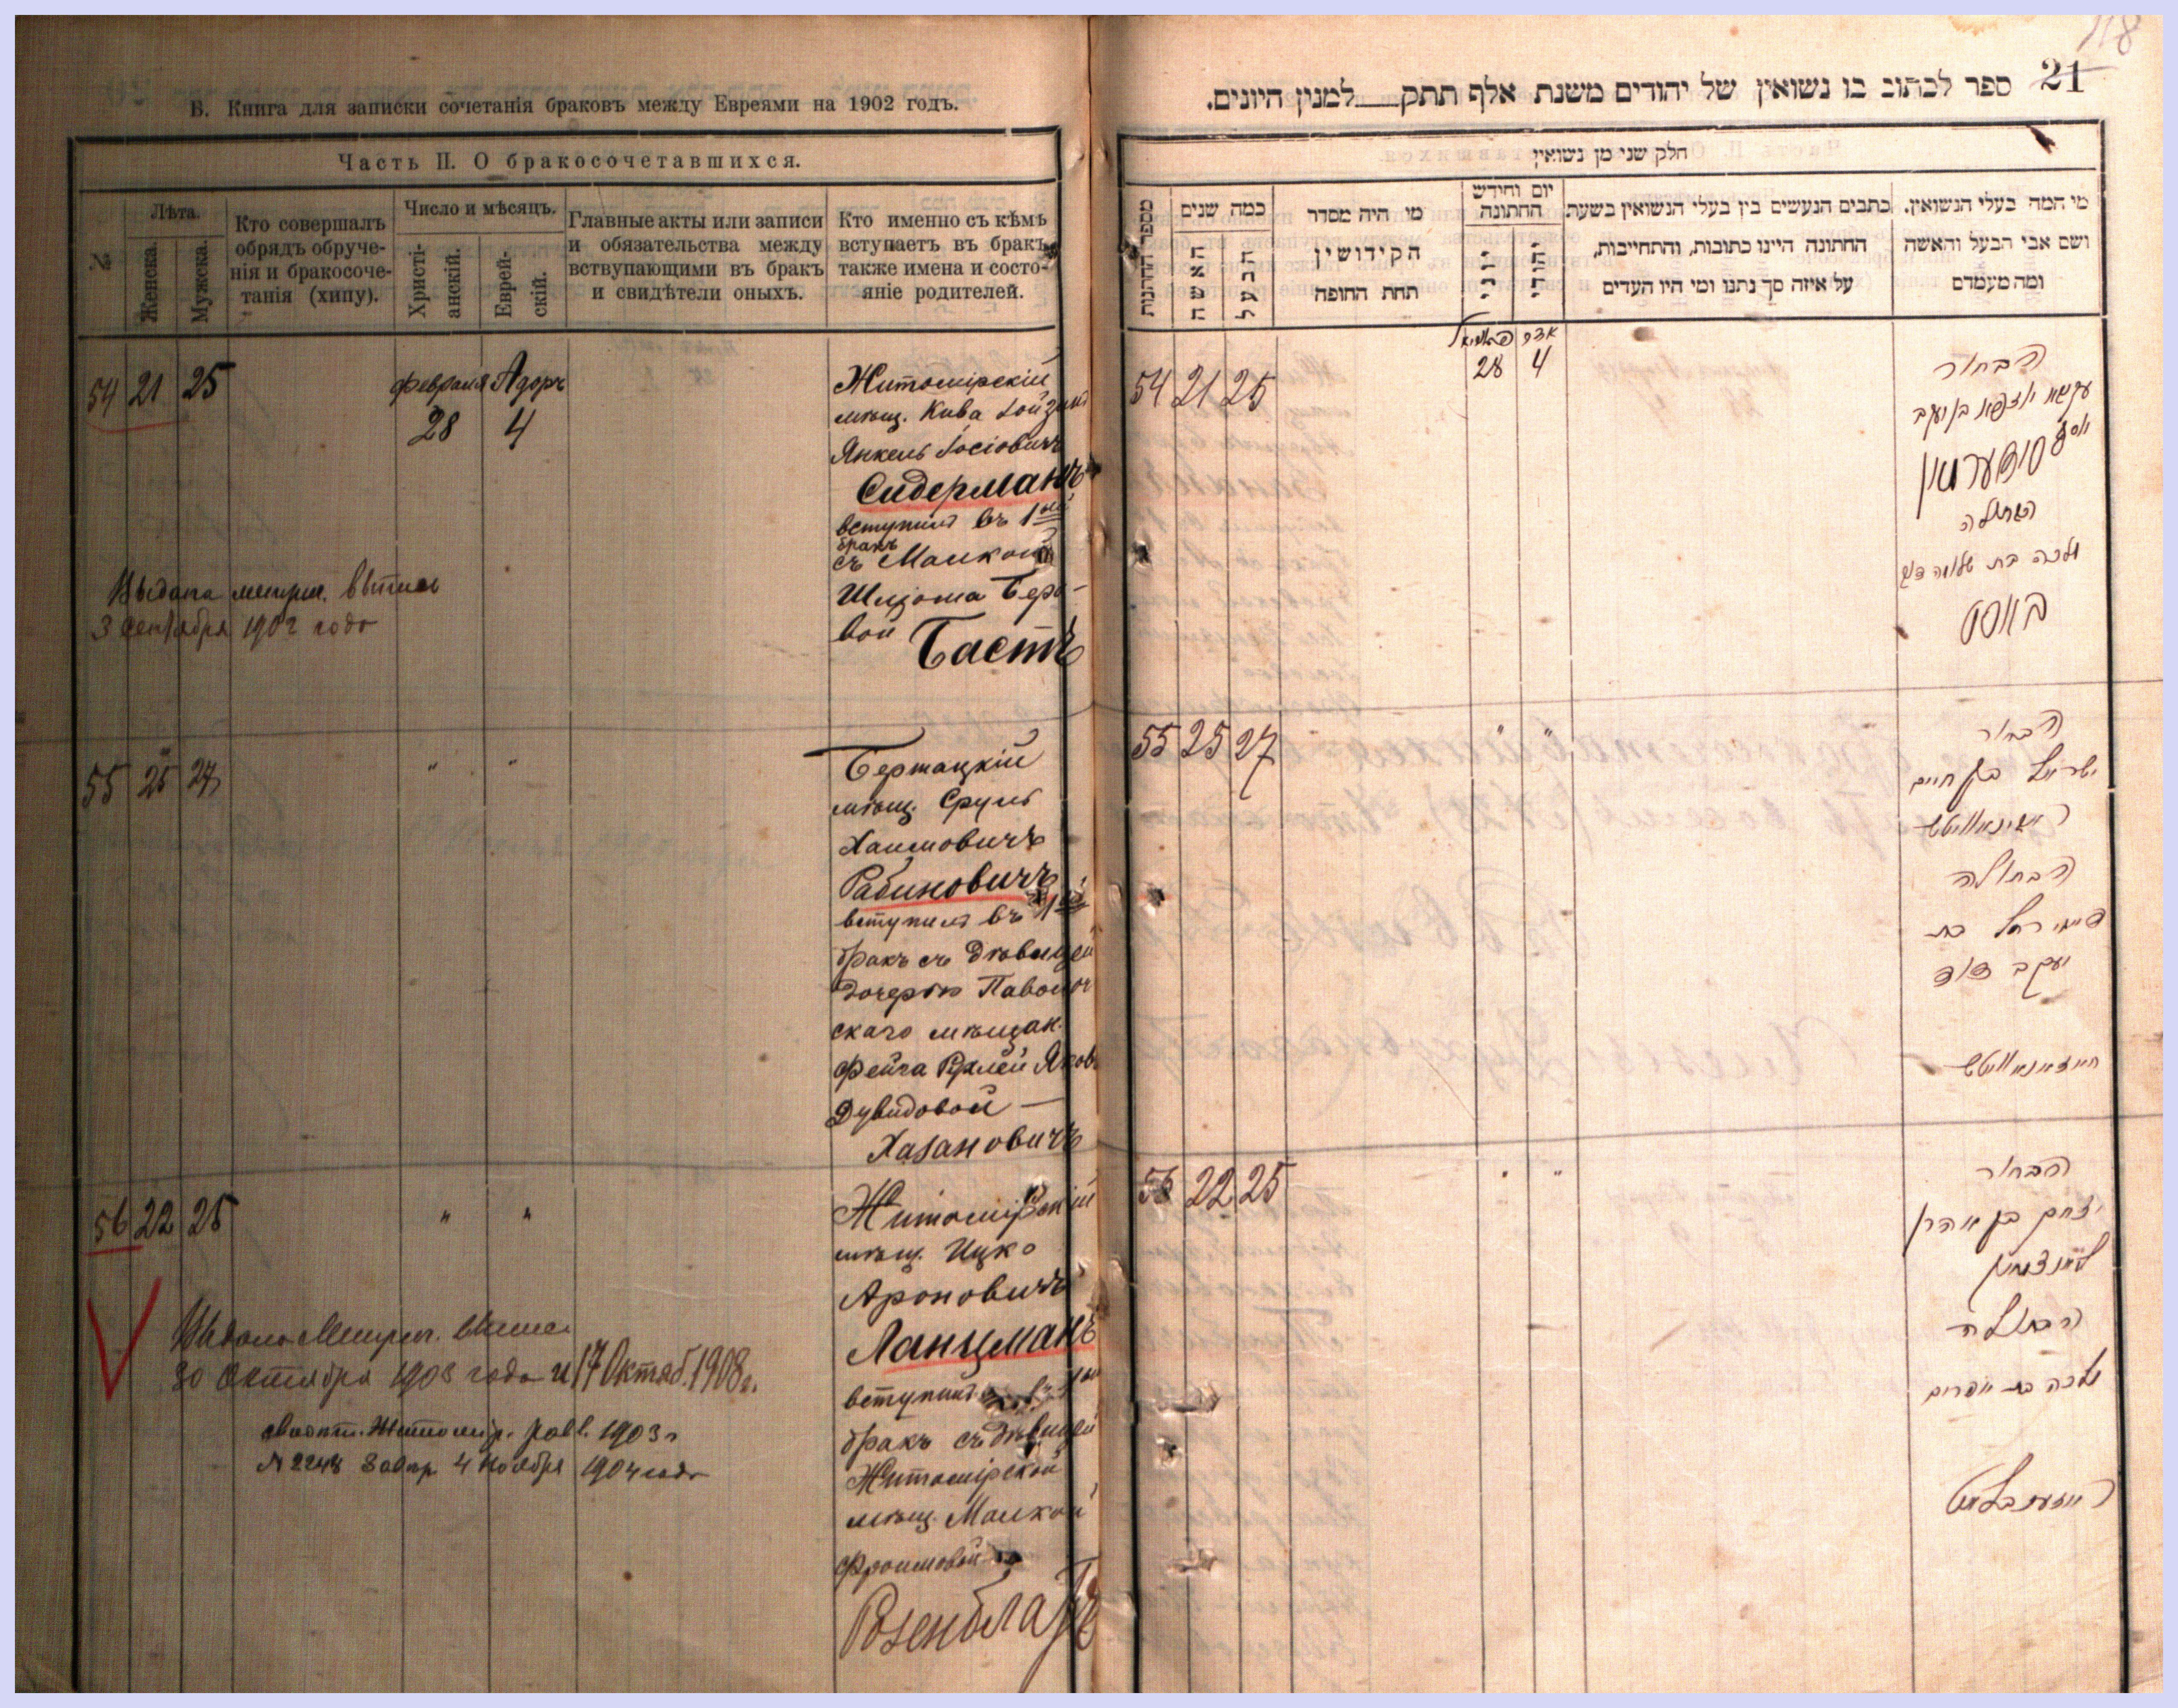 В. Книга для записки сочетанія браковъ между Евреями на 1902 годъ.
Часть II. О бракосочетавшихся.
№
Лѣта.
Женска.
Мужска.
Кто совершалъ
обрядъ обруче-
нія и бракосоче-
танія (хипу).
Число и мѣсяцъ.
Христі-
анскій.
Еврей-
скій.
Главные акты или записи
и обязательства между
вствупающими въ бракъ
и свидѣтели оныхъ.
Кто именно съ кѣмъ
вступаетъ въ бракъ
также имена и состо-
яніе родителей.
54 21 25
февраля Адоръ
28 4
Житомірскій
мѣщ. Кива
Янкель Іосіовичъ
Сидерманъ
вступилъ въ 1ый
бракъ
съ Малкой
Шліома Беро-
вой Бастъ
Выдана метрич. выпись
3 сентября 1902 года
55 25 27 " "
мѣщ. Сруль
Хаимовичъ
Рабиновичъ
вступилъ въ 1ый
бракъ съ дѣвицей
дочерью Паволоч
скаго мѣщан.
Фейга Рухлей Яков
Дувидовой —
Хазановичъ
56 22 25 " "
Житомірскій
мѣщ. Ицко
Ароновичъ
Ланцманъ
вступилъ
бракъ съ дѣвицей
Житомірской
мѣщ. Малкой
Фроимовой
Розенблатъ
Выдана Метрич. выпись
30 Октября 1903 года и 17 Октяб. 1908 г.
Житомір. равв. 1903 г
№ 2248 4 Ноября 1904 года
118
21
ספר לכתוב בו נשואין של יהודים משנת אלף תתק למנין היונים.
חלק שני מן נשואין
מספר החתנות
כמה שנים
האשה
הבעל
מי היה מסדר
הקידושין
תחת החופה
יום וחודש
החתונה
יוני
יהודי
כתבים הנעשים בין בעלי הנשואין בשעת
החתונה היינו כתובות, והתחייבות,
על איזה סך נתנו ומי היו העדים
מי המה בעלי הנשואין.
ושם אבי הבעל והאשה
ומה מעמדם
54 21 25
אדר
28 4
הבחור
יוסף
הבתולה
מלכה בת שלמה
באסט
55 25 27 " "
הבחור
ישראל בן חיים
ראבינאוויטש
הבתולה
פייגי רחל בת
יעקב דוד
חאזאנאוויטש
56 22 25 " "
הבחור
יצחק בן אהרן
לאנצמאן
הבתולה
מלכה בת אפרים
ראזענבלאט